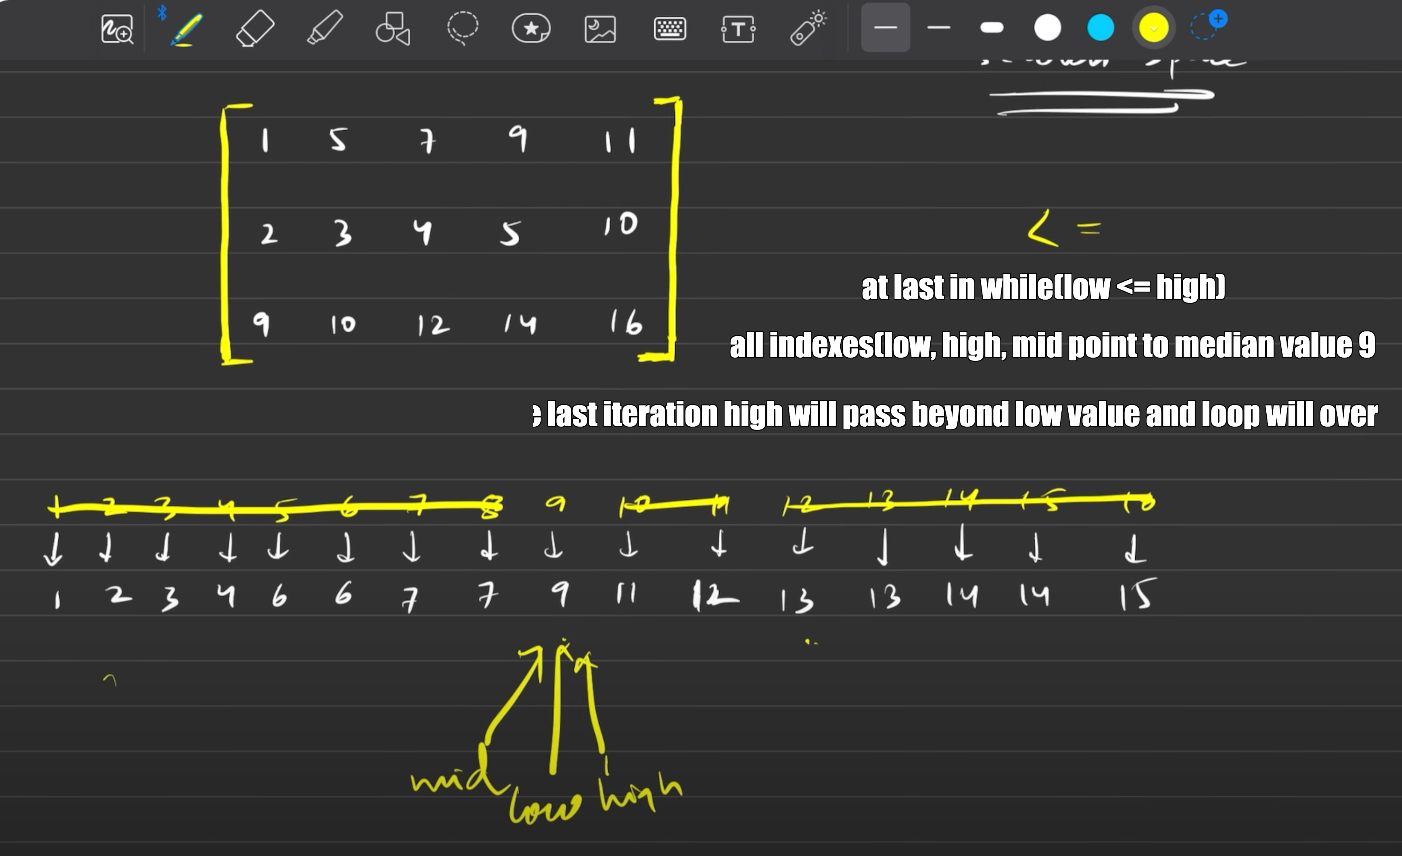 T
1 5 7 9 11
2 3 4 5 10
9 10 12 14 16
< =
at last in while(low <= high)
all indexes(low, high, mid point to median value 9
last iteration high will pass beyond low value and loop will over
1 2 3 4 5 6 7 8 9 10 11 12 13 14 15 16
1 2 3 4 6 6 7 7 9 11 12 13 13 14 14 15
mid low high